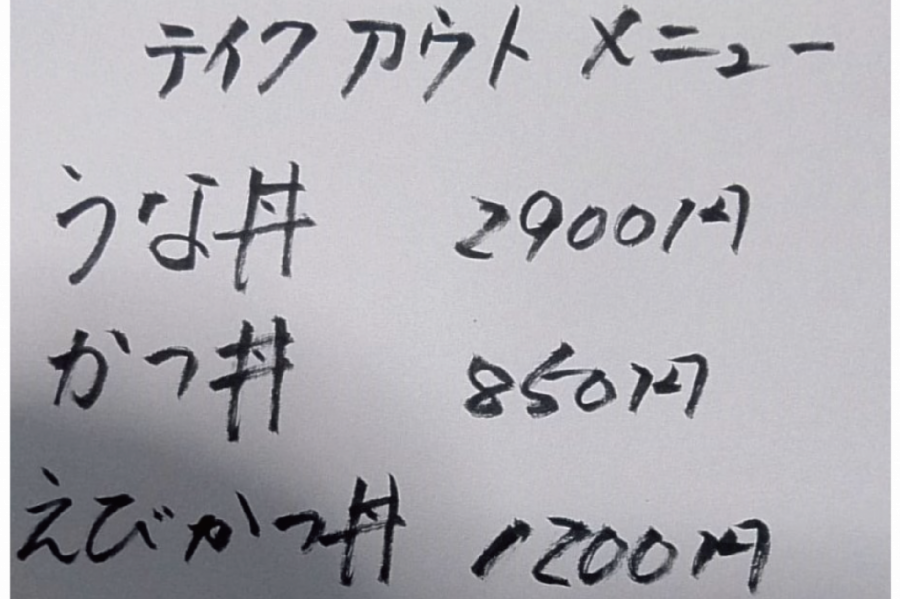 テイクアウト メニュー
うな丼 2900円
かつ丼 850円
えびかつ丼 1200円